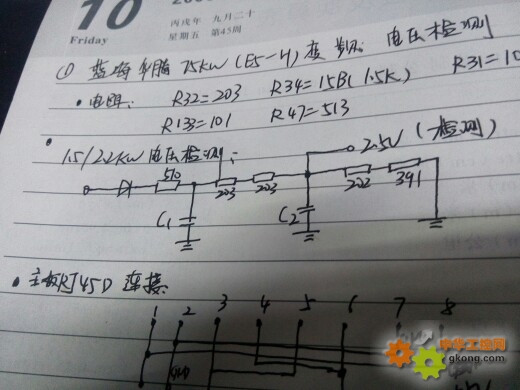 10
Friday
丙戌年 九月二十
星期五 第45周
① 蓝海华腾 75kW (E5-H) 变频 电压检测
• 电阻: R32=203 R34=15B(1.5K) R31=10
R133=101 R47=513
• 1.5/2.2kW 电压检测:
2.5V (检测)
510 203 203 202 391
C1 C2
• 主板RJ45D 连接
1 2 3 4 5 6 7 8
GND
中华工控网
gkong.com